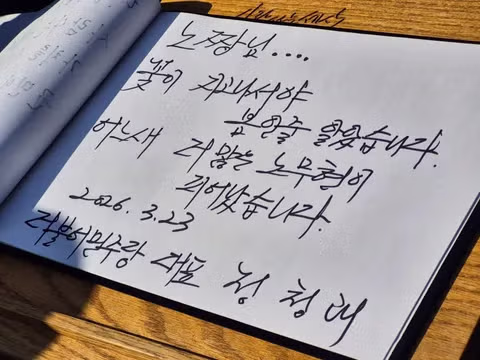 노짱님....
꽃이 지고나서야
봄인줄 알았습니다.
어느새 더 많은 노무현이
피어났습니다.
2026. 3.23
더불어민주당 대표 정청래